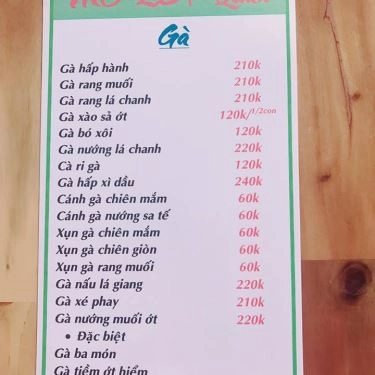 Gà
Gà hấp hành 210k
Gà rang muối 210k
Gà rang lá chanh 210k
Gà xào sả ớt 120k/1/2con
Gà bó xôi 120k
Gà nướng lá chanh 220k
Cà ri gà 120k
Gà hấp xì dầu 240k
Cánh gà chiên mắm 60k
Cánh gà nướng sa tế 60k
Xụn gà chiên mắm 60k
Xụn gà chiên giòn 60k
Xụn gà rang muối 60k
Gà nấu lá giang 220k
Gà xé phay 210k
Gà nướng muối ớt 220k
• Đặc biệt
Gà ba món
Gà tiềm ớt hiểm